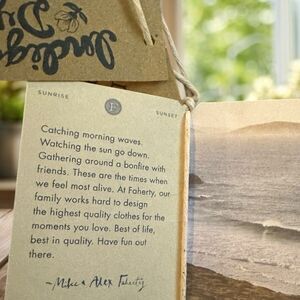 Indigo
SUNRISE
F
SUNSET
Catching morning waves.
Watching the sun go down.
Gathering around a bonfire with
friends. These are the times when
we feel most alive. At Faherty, our
family works hard to design
the highest quality clothes for the
moments you love. Best of life,
best in quality. Have fun out
there.
~Mike & Alex Faherty